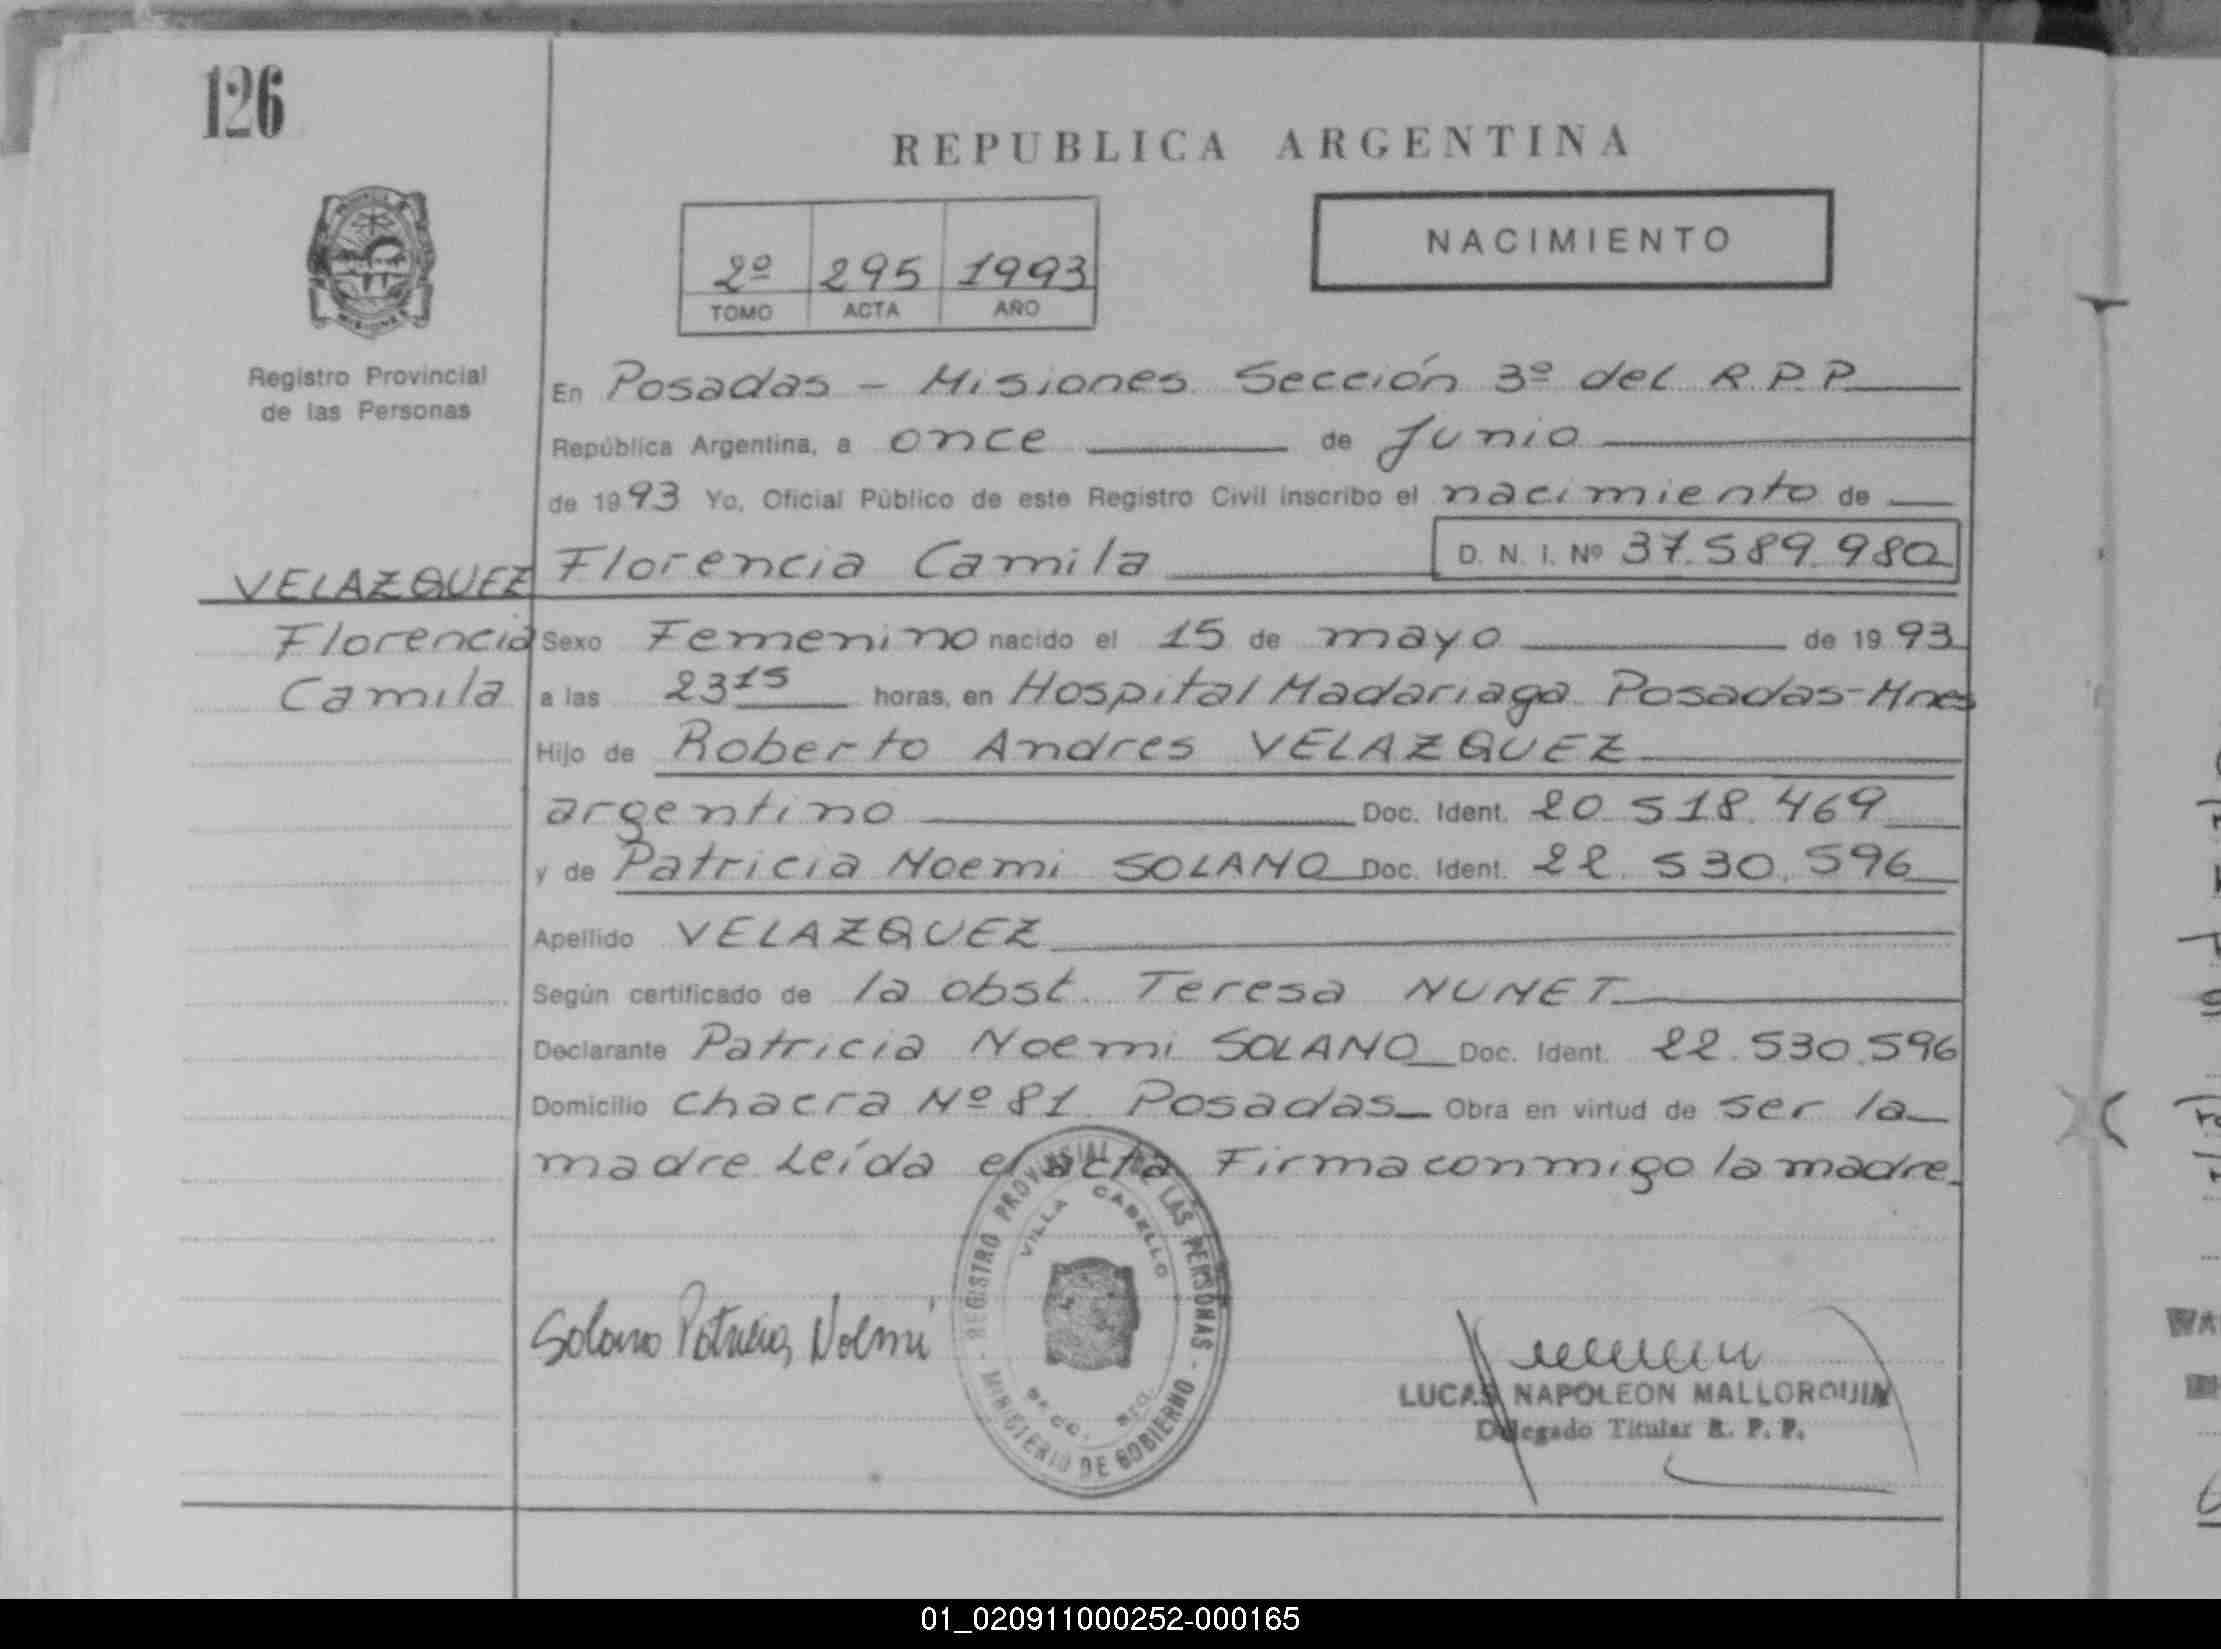 126
REPUBLICA ARGENTINA
NACIMIENTO
2º 295 1993
TOMO ACTA AÑO
Registro Provincial
de las Personas
En Posadas - Misiones Sección 3º del R.P.P.
República Argentina, a once de Junio
de 1993 Yo, Oficial Público de este Registro Civil inscribo el nacimiento de
VELAZQUEZ Florencia Camila D. N. I. Nº 37.589.980
Florencia Sexo Femenino nacido el 15 de mayo de 1993
Camila a las 23 15 horas, en Hospital Madariaga Posadas-Mnes
Hijo de Roberto Andres VELAZQUEZ
argentino Doc. Ident. 20.518.469
y de Patricia Noemi SOLANO Doc. Ident. 22.530.596
Apellido VELAZQUEZ
Según certificado de la obst. Teresa NUNET
Declarante Patricia Noemi SOLANO Doc. Ident. 22.530.596
Domicilio chacra Nº 81 Posadas Obra en virtud de ser la
madre Leída el acta Firma conmigo la madre
REGISTRO PROVINCIAL DE LAS PERSONAS
VILLA CABELLO
- MINISTERIO DE GOBIERNO -
Solano Patricia Noemí
LUCAS NAPOLEON MALLORQUIN
Delegado Titular R. P. P.
01_020911000252-000165